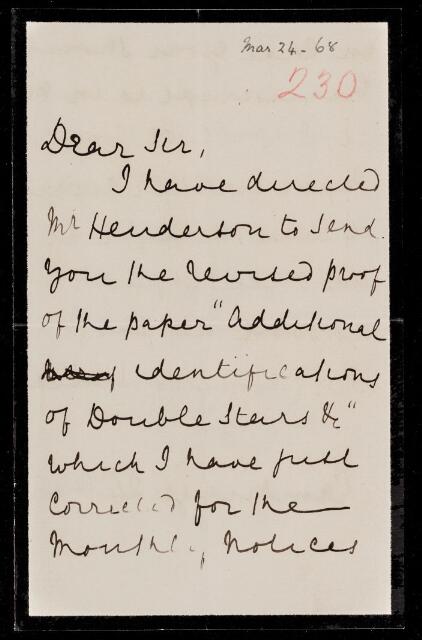 Mar 24 - 68
230
Dear Sir,
I have directed
Mr Henderson to send
you the revised proof
of the paper "Additional
identifications
of Double Stars &c"
which I have just
corrected for the
Monthly Notices